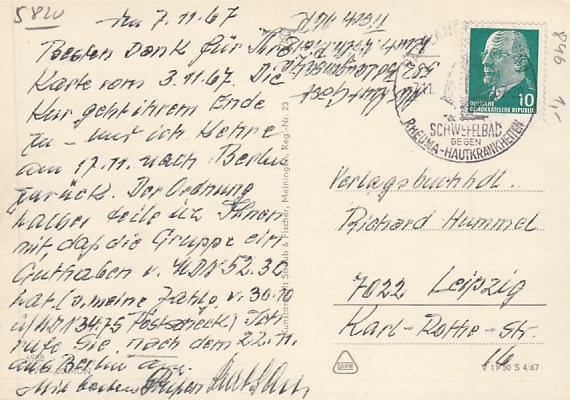 5820
7.11.67
Besten Dank für Ihre
Karte vom 3.11.67. Die
Kur geht ihrem Ende
zu – und ich kehre
am 17.11. nach Berlin
zurück. Der Ordnung
halber teile ich Ihnen
mit daß die Gruppe ein
Guthaben v. MDN 52.30
hat (v. meine Zahlg. v. 30.10
ü/MDN 134.75 Postscheck) Ich
rufe Sie nach dem 22.11.
aus Berlin an.
Mit besten Grüßen
Kunstanstalt Straub & Fischer, Meiningen, Reg.-Nr. 23
DEUTSCHE
DEMOKRATISCHE REPUBLIK
10
SCHWEFELBAD
GEGEN
RHEUMA-HAUTKRANKHEITEN
Verlagsbuchhdl.
Richard Hummel
7022 Leipzig
Karl-Rothe-Str.
16
V 11 50 S 4/67